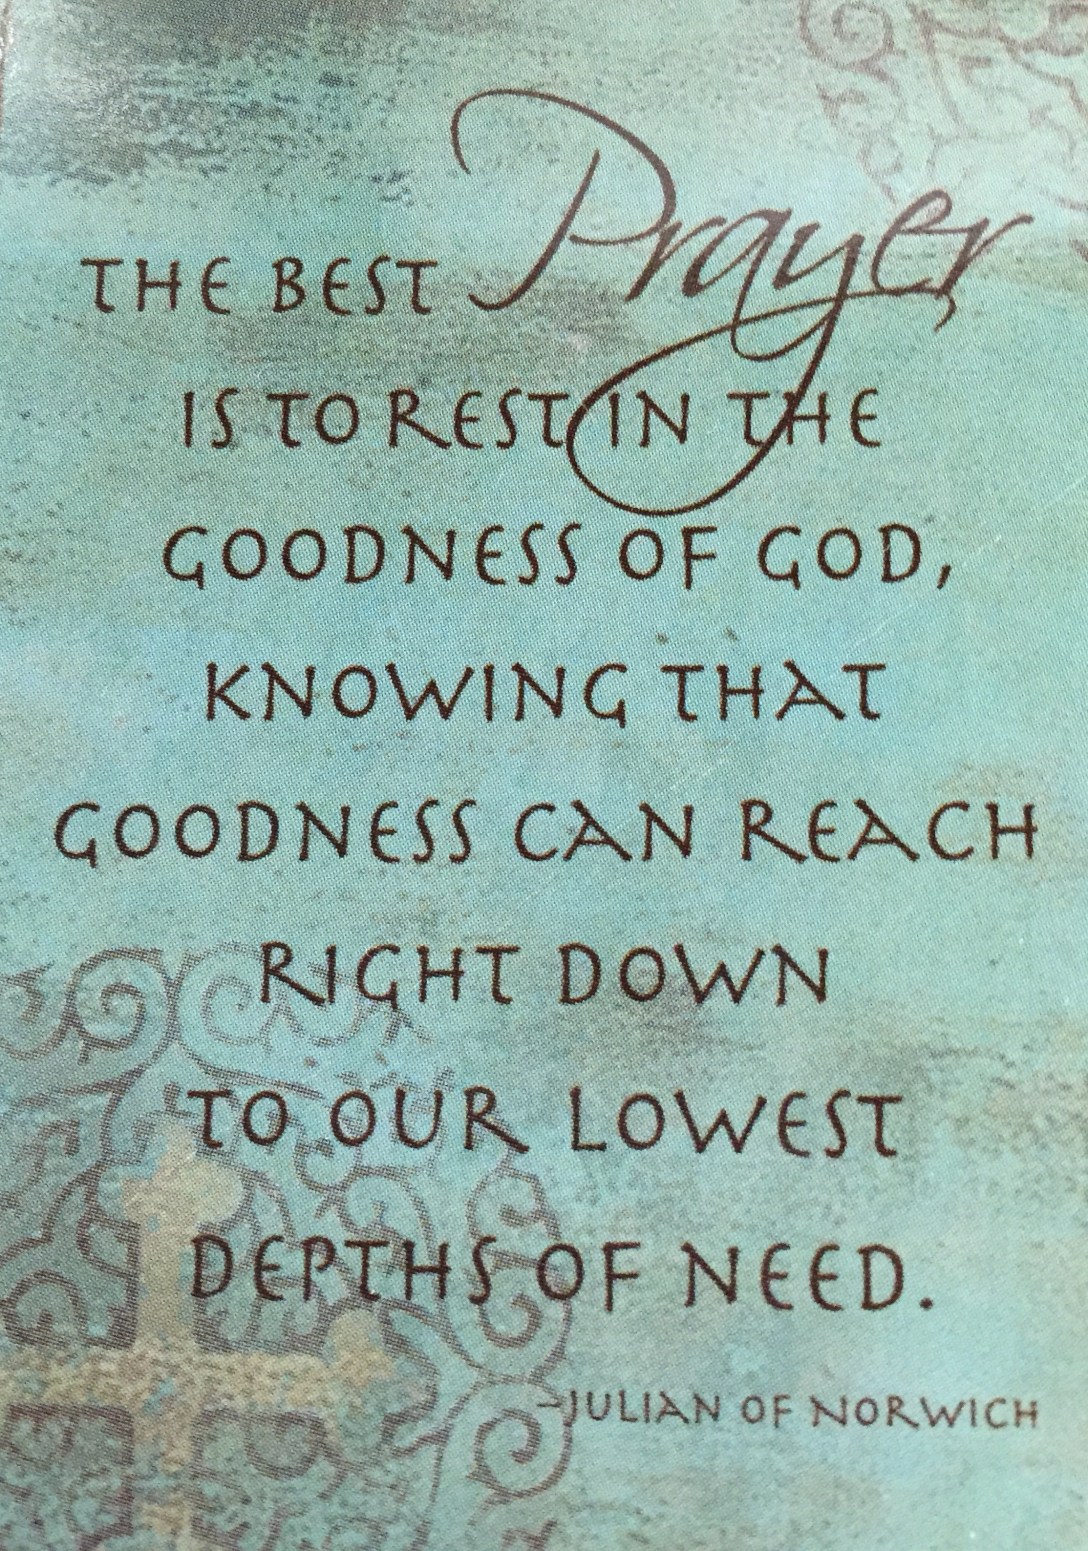 THE BEST Prayer
IS TO REST IN THE
GOODNESS OF GOD,
KNOWING THAT
GOODNESS CAN REACH
RIGHT DOWN
TO OUR LOWEST
DEPTHS OF NEED.
~JULIAN OF NORWICH